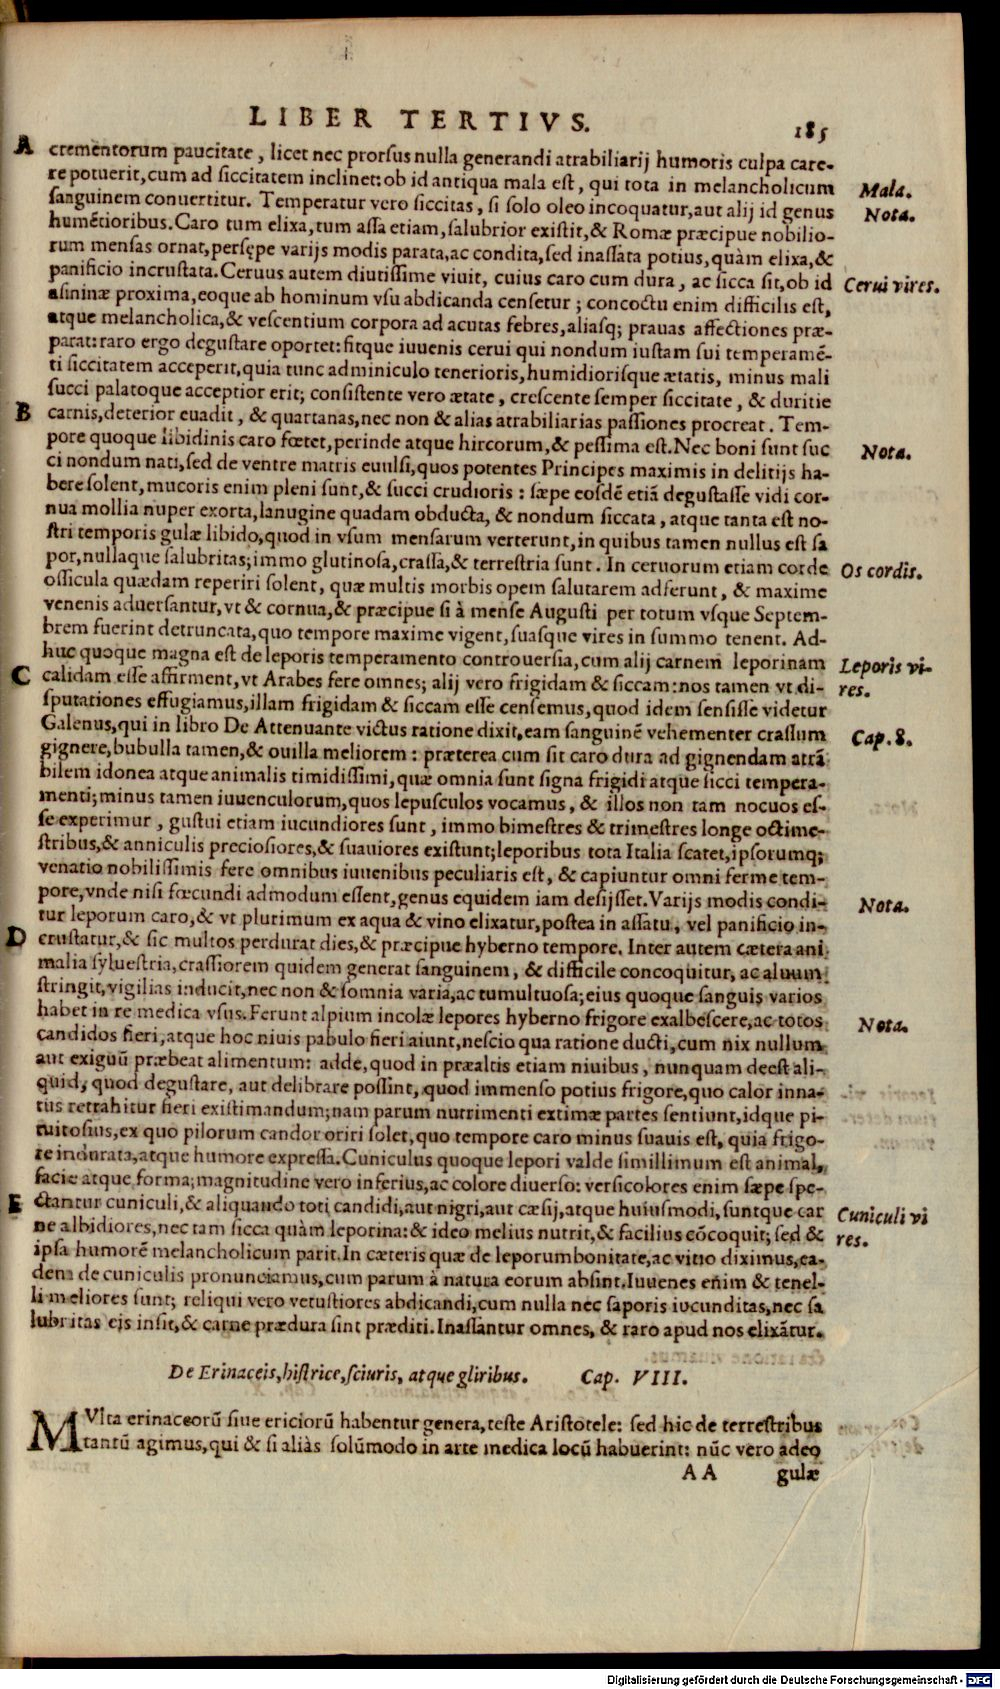 LIBER TERTIVS. 185
A crementorum paucitate, licet nec prorsus nulla generandi atrabiliarij humoris culpa care-
re potuerit, cum ad siccitatem inclinet: ob id antiqua mala est, qui tota in melancholicum Mala.
sanguinem conuertitur. Temperatur vero siccitas, si solo oleo incoquatur, aut alij id genus Nota.
humētioribus. Caro tum elixa, tum assa etiam, salubrior existit, & Romæ præcipue nobilio-
rum mensas ornat, persępe varijs modis parata, ac condita, sed inassata potius, quàm elixa, &
panificio incrustata. Ceruus autem diutissime viuit, cuius caro cum dura, ac sicca sit, ob id Cerui vires.
asininæ proxima, eoque ab hominum vsu abdicanda censetur; concoctu enim difficilis est,
atque melancholica, & vescentium corpora ad acutas febres, aliasq; prauas affectiones præ-
parat: raro ergo degustare oportet: sitque iuuenis cerui qui nondum iustam sui temperamē-
ti siccitatem acceperit, quia tunc adminiculo tenerioris, humidiorisque ætatis, minus mali
succi palatoque acceptior erit; consistente vero ætate, crescente semper siccitate, & duritie
B carnis, deterior euadit, & quartanas, nec non & alias atrabiliarias passiones procreat. Tem-
pore quoque libidinis caro fœtet, perinde atque hircorum, & pessima est. Nec boni sunt suc
ci nondum nati, sed de ventre matris euulsi, quos potentes Principes maximis in delitijs ha- Nota.
bere solent, mucoris enim pleni sunt, & succi crudioris: sæpe eosdē etiā degustasse vidi cor-
nua mollia nuper exorta, lanugine quadam obducta, & nondum siccata, atque tanta est no-
stri temporis gulæ libido, quod in vsum mensarum verterunt, in quibus tamen nullus est sa
por, nullaque salubritas; immo glutinosa, crassa, & terrestria sunt. In ceruorum etiam corde Os cordis.
ossicula quædam reperiri solent, quæ multis morbis opem salutarem adferunt, & maxime
venenis aduersantur, vt & cornua, & præcipue si à mense Augusti per totum vsque Septem-
brem fuerint detruncata, quo tempore maxime vigent, suasque vires in summo tenent. Ad-
huc quoque magna est de leporis temperamento controuersia, cum alij carnem leporinam Leporis vi-
C calidam esse affirment, vt Arabes fere omnes; alij vero frigidam & siccam: nos tamen vt di- res.
sputationes effugiamus, illam frigidam & siccam esse censemus, quod idem sensisse videtur
Galenus, qui in libro De Attenuante victus ratione dixit, eam sanguinē vehementer crassum Cap. 8.
gignere, bubulla tamen, & ouilla meliorem: præterea cum sit caro dura ad gignendam atrā
bilem idonea atque animalis timidissimi, quæ omnia sunt signa frigidi atque sicci tempera-
menti; minus tamen iuuenculorum, quos lepusculos vocamus, & illos non tam nocuos es-
se experimur, gustui etiam iucundiores sunt, immo bimestres & trimestres longe octime-
stribus, & anniculis preciosiores, & suauiores existunt; leporibus tota Italia scatet, ipsorumq;
venatio nobilissimis fere omnibus iuuenibus peculiaris est, & capiuntur omni ferme tem-
pore, vnde nisi fœcundi admodum essent, genus equidem iam desijsset. Varijs modis condi- Nota.
tur leporum caro, & vt plurimum ex aqua & vino elixatur, postea in assatu, vel panificio in-
D crustatur, & sic multos perdurat dies, & præcipue hyberno tempore. Inter autem cætera ani
malia syluestria, crassiorem quidem generat sanguinem, & difficile concoquitur, ac aluum
stringit, vigilias inducit, nec non & somnia varia, ac tumultuosa; eius quoque sanguis varios
habet in re medica vsus. Ferunt alpium incolæ lepores hyberno frigore exalbescere, ac totos Nota.
candidos fieri, atque hoc niuis pabulo fieri aiunt, nescio qua ratione ducti, cum nix nullum
aut exiguū præbeat alimentum: adde, quod in præaltis etiam niuibus, nunquam deest ali-
quid, quod degustare, aut delibrare possint, quod immenso potius frigore, quo calor inna-
tus retrahitur fieri existimandum; nam parum nutrimenti extimæ partes sentiunt, idque pi-
tuitosius, ex quo pilorum candor oriri solet, quo tempore caro minus suauis est, quia frigo-
re indurata, atque humore expressa. Cuniculus quoque lepori valde simillimum est animal,
facie atque forma; magnitudine vero inferius, ac colore diuerso: versicolores enim sæpe spe-
E ctantur cuniculi, & aliquando toti candidi, aut nigri, aut cæsij, atque huiusmodi, suntque car Cuniculi vi
ne albidiores, nec tam sicca quàm leporina: & ideo melius nutrit, & facilius cōcoquit; sed & res.
ipsa humorē melancholicum parit. In cæteris quæ de leporum bonitate, ac vitio diximus, ea-
dem de cuniculis pronunciamus, cum parum à natura eorum absint. Iuuenes enim & tenel-
li meliores sunt; reliqui vero vetustiores abdicandi, cum nulla nec saporis iucunditas, nec sa
lubritas eis insit, & carne prædura sint præditi. Inassantur omnes, & raro apud nos elixātur.
De Erinaceis, histrice, sciuris, atque gliribus. Cap. VIII.
MVlta erinaceorū siue ericiorū habentur genera, teste Aristotele: sed hic de terrestribus
tantū agimus, qui & si aliàs solūmodo in arte medica locū habuerint: nūc vero adeo
AA gulæ
Digitalisierung gefördert durch die Deutsche Forschungsgemeinschaft - DFG